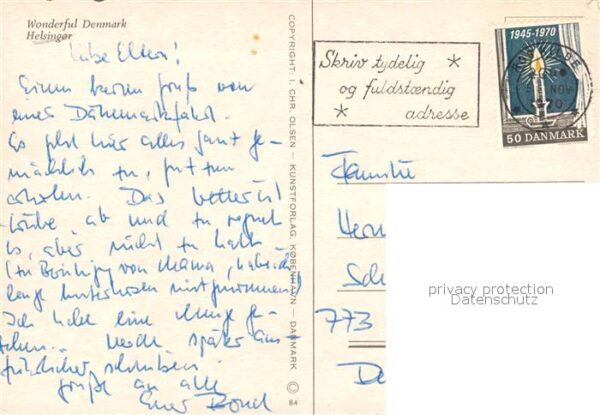 Wonderful Denmark
Helsingør
Liebe Eltern!
Einen lieben Gruß von
einer Dänemarkfahrt.
Es geht hier alles ganz ge-
mächlich zu, gut zum
erholen. Das Wetter ist
trübe, ab und zu regnet
es, aber nicht zu kalt
(zu Beruhigung von Mama, habe
lange Unterhosen mitgenommen)
Ich habe eine Menge ge-
sehen. Werde später aus-
führlicher schreiben.
Grüße an alle
Euer
COPYRIGHT: I. CHR. OLSEN — KUNSTFORLAG, KØBENHAVN — DANMARK ©
84
Skriv tydelig
og fuldstændig
adresse
1945-1970
NOV
50 DANMARK
Familie
773
privacy protection
Datenschutz